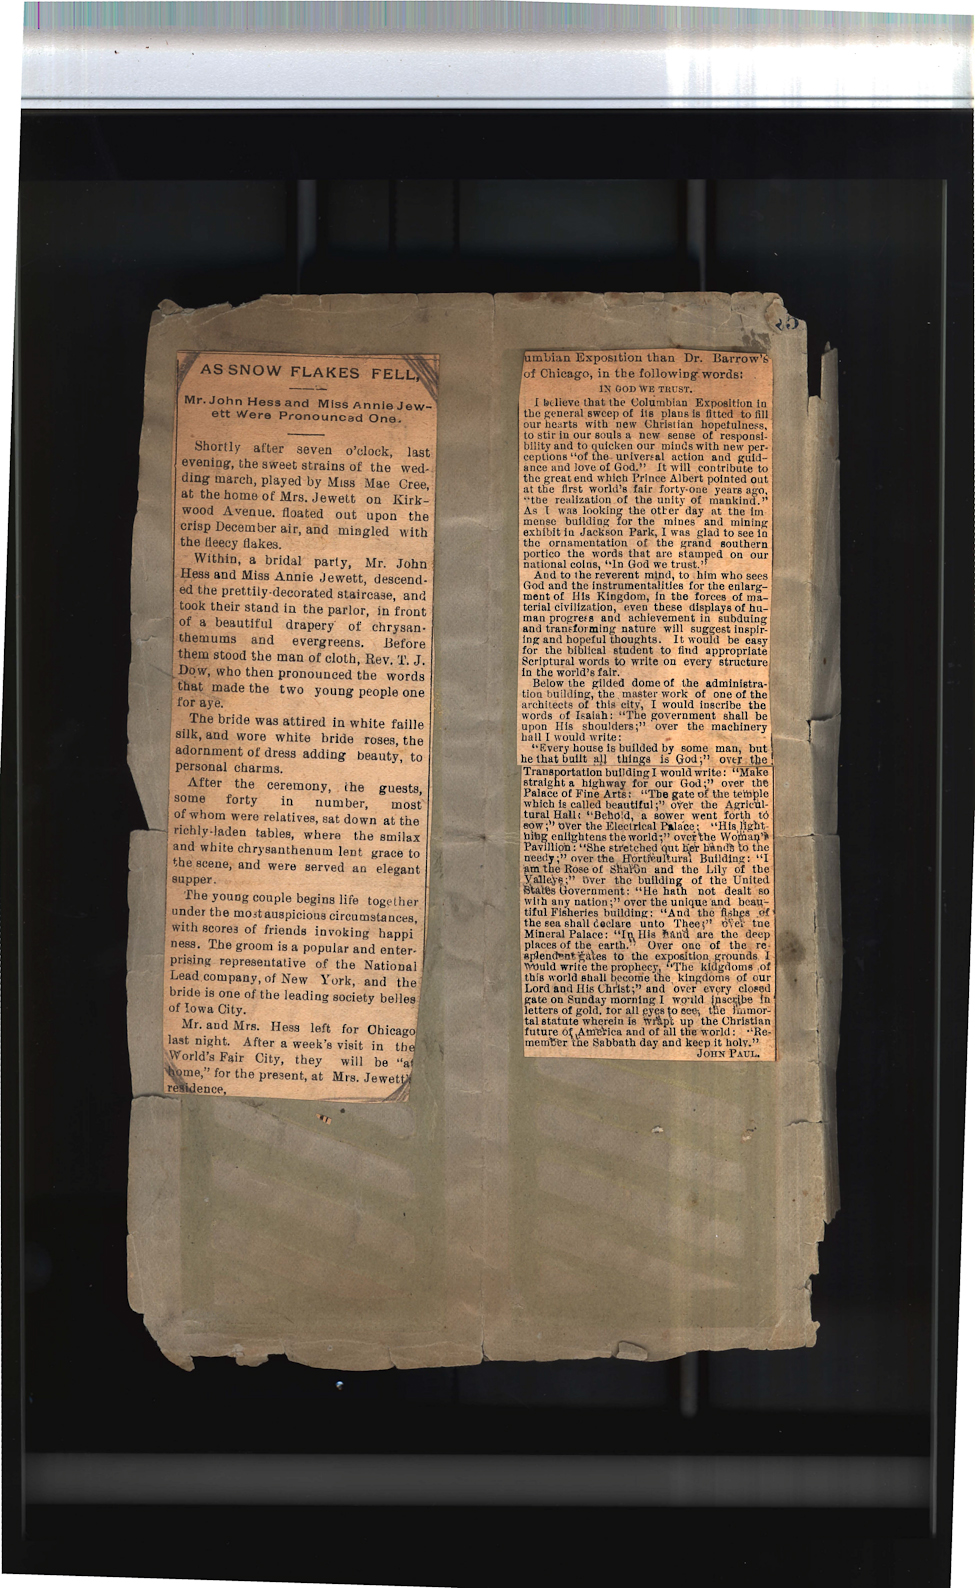 AS SNOW FLAKES FELL,
Mr. John Hess and Miss Annie Jew-
ett Were Pronounced One.
Shortly after seven o'clock, last
evening, the sweet strains of the wed-
ding march, played by Miss Mae Cree,
at the home of Mrs. Jewett on Kirk-
wood Avenue. floated out upon the
crisp December air, and mingled with
the fleecy flakes.
Within, a bridal party, Mr. John
Hess and Miss Annie Jewett, descend-
ed the prettily-decorated staircase, and
took their stand in the parlor, in front
of a beautiful drapery of chrysan-
themums and evergreens. Before
them stood the man of cloth, Rev. T. J.
Dow, who then pronounced the words
that made the two young people one
for aye.
The bride was attired in white faille
silk, and wore white bride roses, the
adornment of dress adding beauty, to
personal charms.
After the ceremony, the guests,
some forty in number, most
of whom were relatives, sat down at the
richly-laden tables, where the smilax
and white chrysanthenum lent grace to
the scene, and were served an elegant
supper.
The young couple begins life together
under the most auspicious circumstances,
with scores of friends invoking happi
ness. The groom is a popular and enter-
prising representative of the National
Lead company, of New York, and the
bride is one of the leading society belles
of Iowa City.
Mr. and Mrs. Hess left for Chicago
last night. After a week's visit in the
World's Fair City, they will be "at
home," for the present, at Mrs. Jewett's
residence.
85
umbian Exposition than Dr. Barrow's
of Chicago, in the following words:
IN GOD WE TRUST.
I believe that the Columbian Exposition in
the general sweep of its plans is fitted to fill
our hearts with new Christian hopefulness,
to stir in our souls a new sense of responsi-
bility and to quicken our minds with new per-
ceptions "of the universal action and guid-
ance and love of God." It will contribute to
the great end which Prince Albert pointed out
at the first world's fair forty-one years ago,
"the realization of the unity of mankind."
As I was looking the other day at the im
mense building for the mines and mining
exhibit in Jackson Park, I was glad to see in
the ornamentation of the grand southern
portico the words that are stamped on our
national coins, "In God we trust."
And to the reverent mind, to him who sees
God and the instrumentalities for the enlarg-
ment of His Kingdom, in the forces of ma-
terial civilization, even these displays of hu-
man progress and achievement in subduing
and transforming nature will suggest inspir-
ing and hopeful thoughts. It would be easy
for the biblical student to find appropriate
Scriptural words to write on every structure
in the world's fair.
Below the gilded dome of the administra-
tion building, the master work of one of the
architects of this city, I would inscribe the
words of Isaiah: "The government shall be
upon His shoulders;" over the machinery
hall I would write:
"Every house is builded by some man, but
he that built all things is God;" over the
Transportation building I would write: "Make
straight a highway for our God;" over the
Palace of Fine Arts: "The gate of the temple
which is called beautiful;" over the Agricul-
tural Hall: "Behold, a sower went forth to
sow;" over the Electrical Palace: "His light-
ning enlightens the world;" over the Woman's
Pavillion: "She stretched out her hands to the
needy;" over the Horticultural Building: "I
am the Rose of Sharon and the Lily of the
Valleys;" over the building of the United
States Government: "He hath not dealt so
with any nation;" over the unique and beau-
tiful Fisheries building: "And the fishes of
the sea shall declare unto Thee;" over the
Mineral Palace: "In His hand are the deep
places of the earth." Over one of the re-
splendent gates to the exposition grounds I
would write the prophecy, "The kidgdoms of
this world shall become the kingdoms of our
Lord and His Christ;" and over every closed
gate on Sunday morning I would inscribe in
letters of gold, for all eyes to see, the immor-
tal statute wherein is wrapt up the Christian
future of America and of all the world: "Re-
member the Sabbath day and keep it holy."
JOHN PAUL.